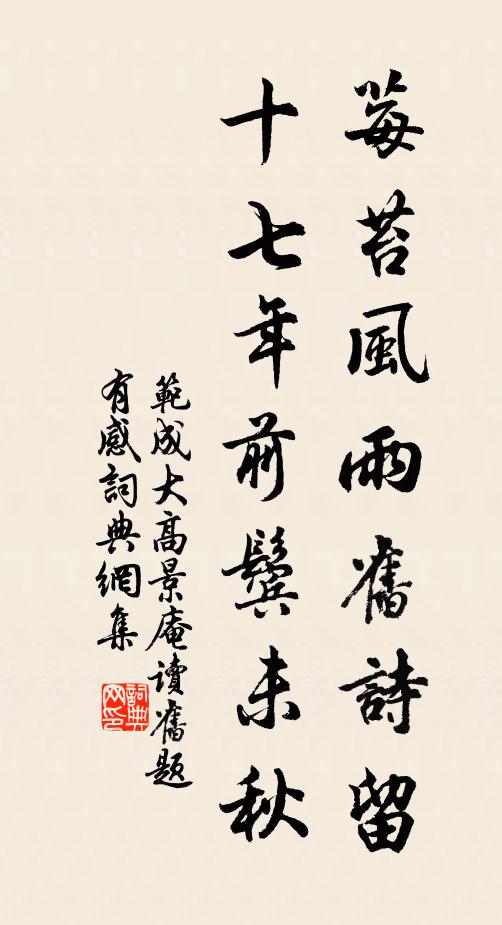 莓苔風雨舊詩留
十七年前鬢未秋
範成大高景庵讀舊題
有感詞典網集
詞典
网印